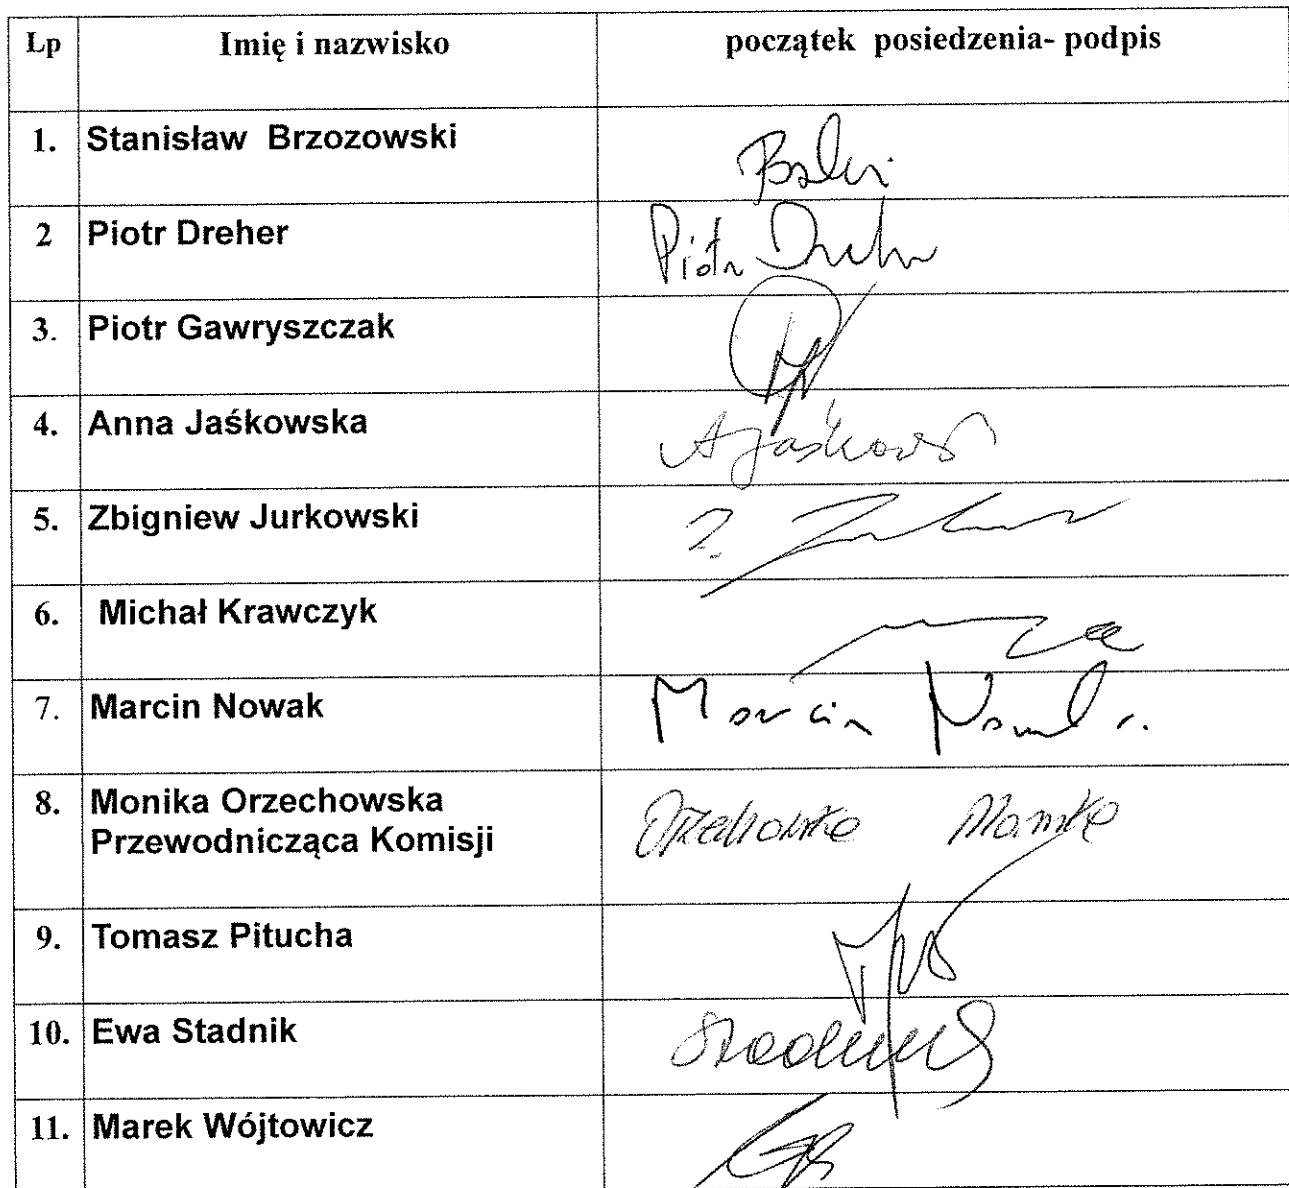 Lp Imię i nazwisko początek posiedzenia- podpis
1. Stanisław Brzozowski
2 Piotr Dreher Piotr Dreher
3. Piotr Gawryszczak
4. Anna Jaśkowska
5. Zbigniew Jurkowski
6. Michał Krawczyk
7. Marcin Nowak Marcin Nowak
8. Monika Orzechowska
Przewodnicząca Komisji Orzechowska Monika
9. Tomasz Pitucha
10. Ewa Stadnik Stadnik
11. Marek Wójtowicz